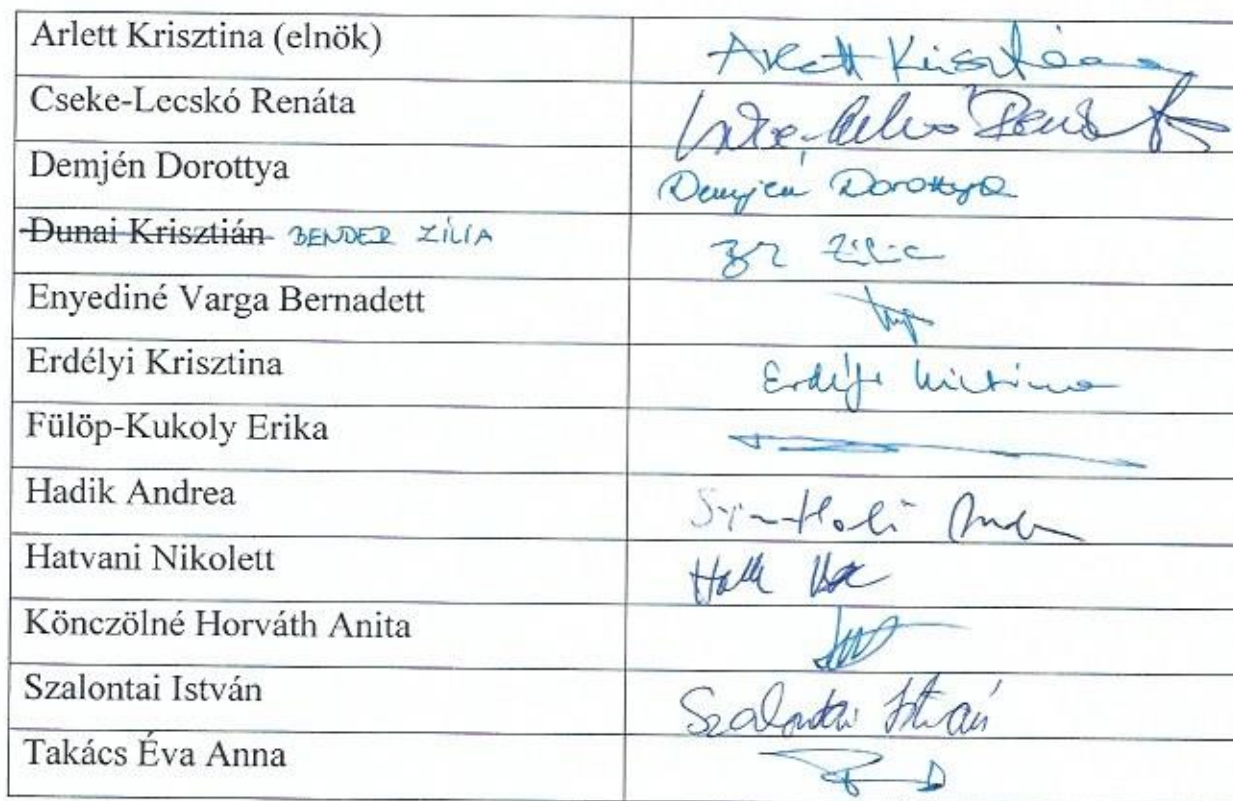 Arlett Krisztina (elnök) Arlett Krisztina
Cseke-Lecskó Renáta
Demjén Dorottya Demjén Dorottya
Dunai Krisztián BENDER ZÍLIA
Enyediné Varga Bernadett
Erdélyi Krisztina Erdélyi Krisztina
Fülöp-Kukoly Erika
Hadik Andrea
Hatvani Nikolett
Könczölné Horváth Anita
Szalontai István Szalontai István
Takács Éva Anna